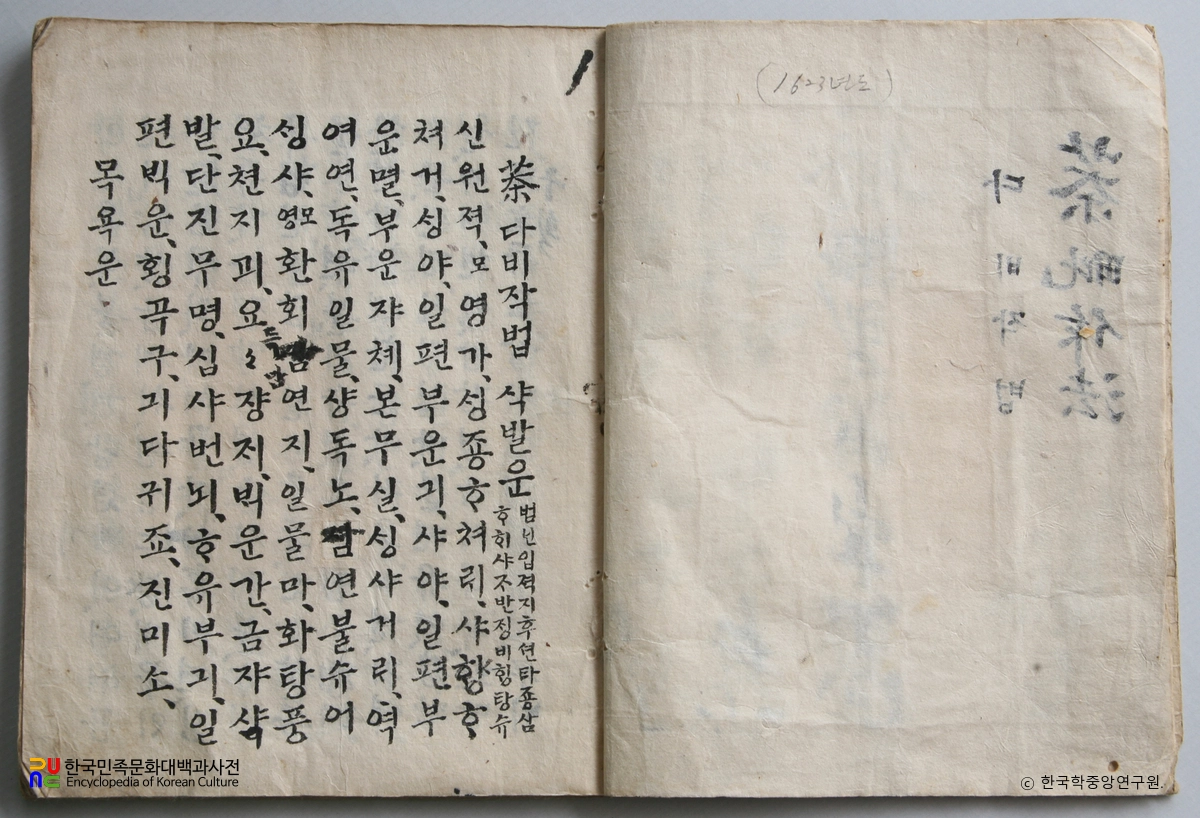 (1623년도)
茶毗作法
다비작법
茶 다비작법 샥발운
법닌입젹지후션타죵삼
ᄒᆞ히샤조반징비힝탕슈
신원젹, 모영가, 싱죵ᄒᆞ쳐릭, 샤향ᄒᆞ
쳐거, 싱야, 일편부운긔, 샤야, 일편부
운멸, 부운쟈쳬, 본무실, 싱샤거릭, 역
여연, 독유일물, 샹독노, 담연불슈어
싱샤, 모영 환회득담연지, 일물마, 화탕풍
요, 쳔지괴, 요〻쟝저, 빅운간, 금쟈샥
발, 단진무명, 십샤번뇌, ᄒᆞ유부긔, 일
편빅운, 횡곡구, 긔다귀죠, 진미소,
목욕운
한국민족문화대백과사전
Encyclopedia of Korean Culture
ⓒ 한국학중앙연구원.